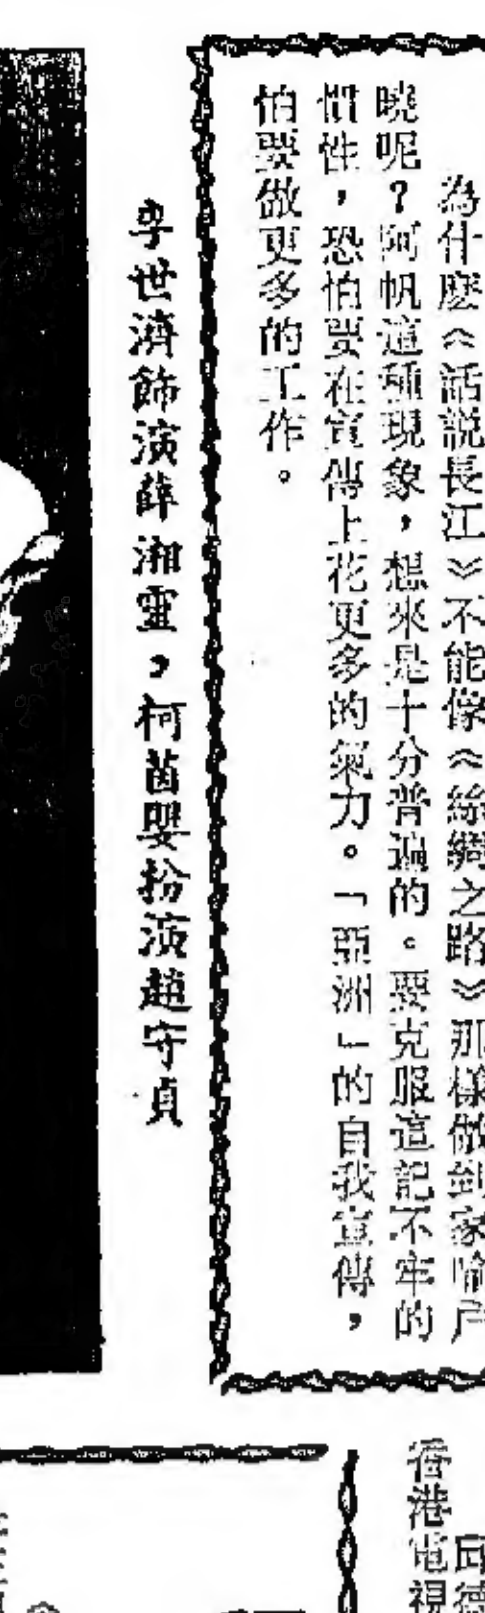 為什麼《話説長江》不能像《絲綢之路》那樣做到家喻户
曉呢？阿帆這種現象，想來是十分普遍的。要克服這記不牢的
慣性，恐怕要在宣傳上花更多的氣力。「亞洲」的自我宣傳，
怕要做更多的工作。
李世濟飾演薛湘靈，柯茵嬰扮演趙守貞
香港電視